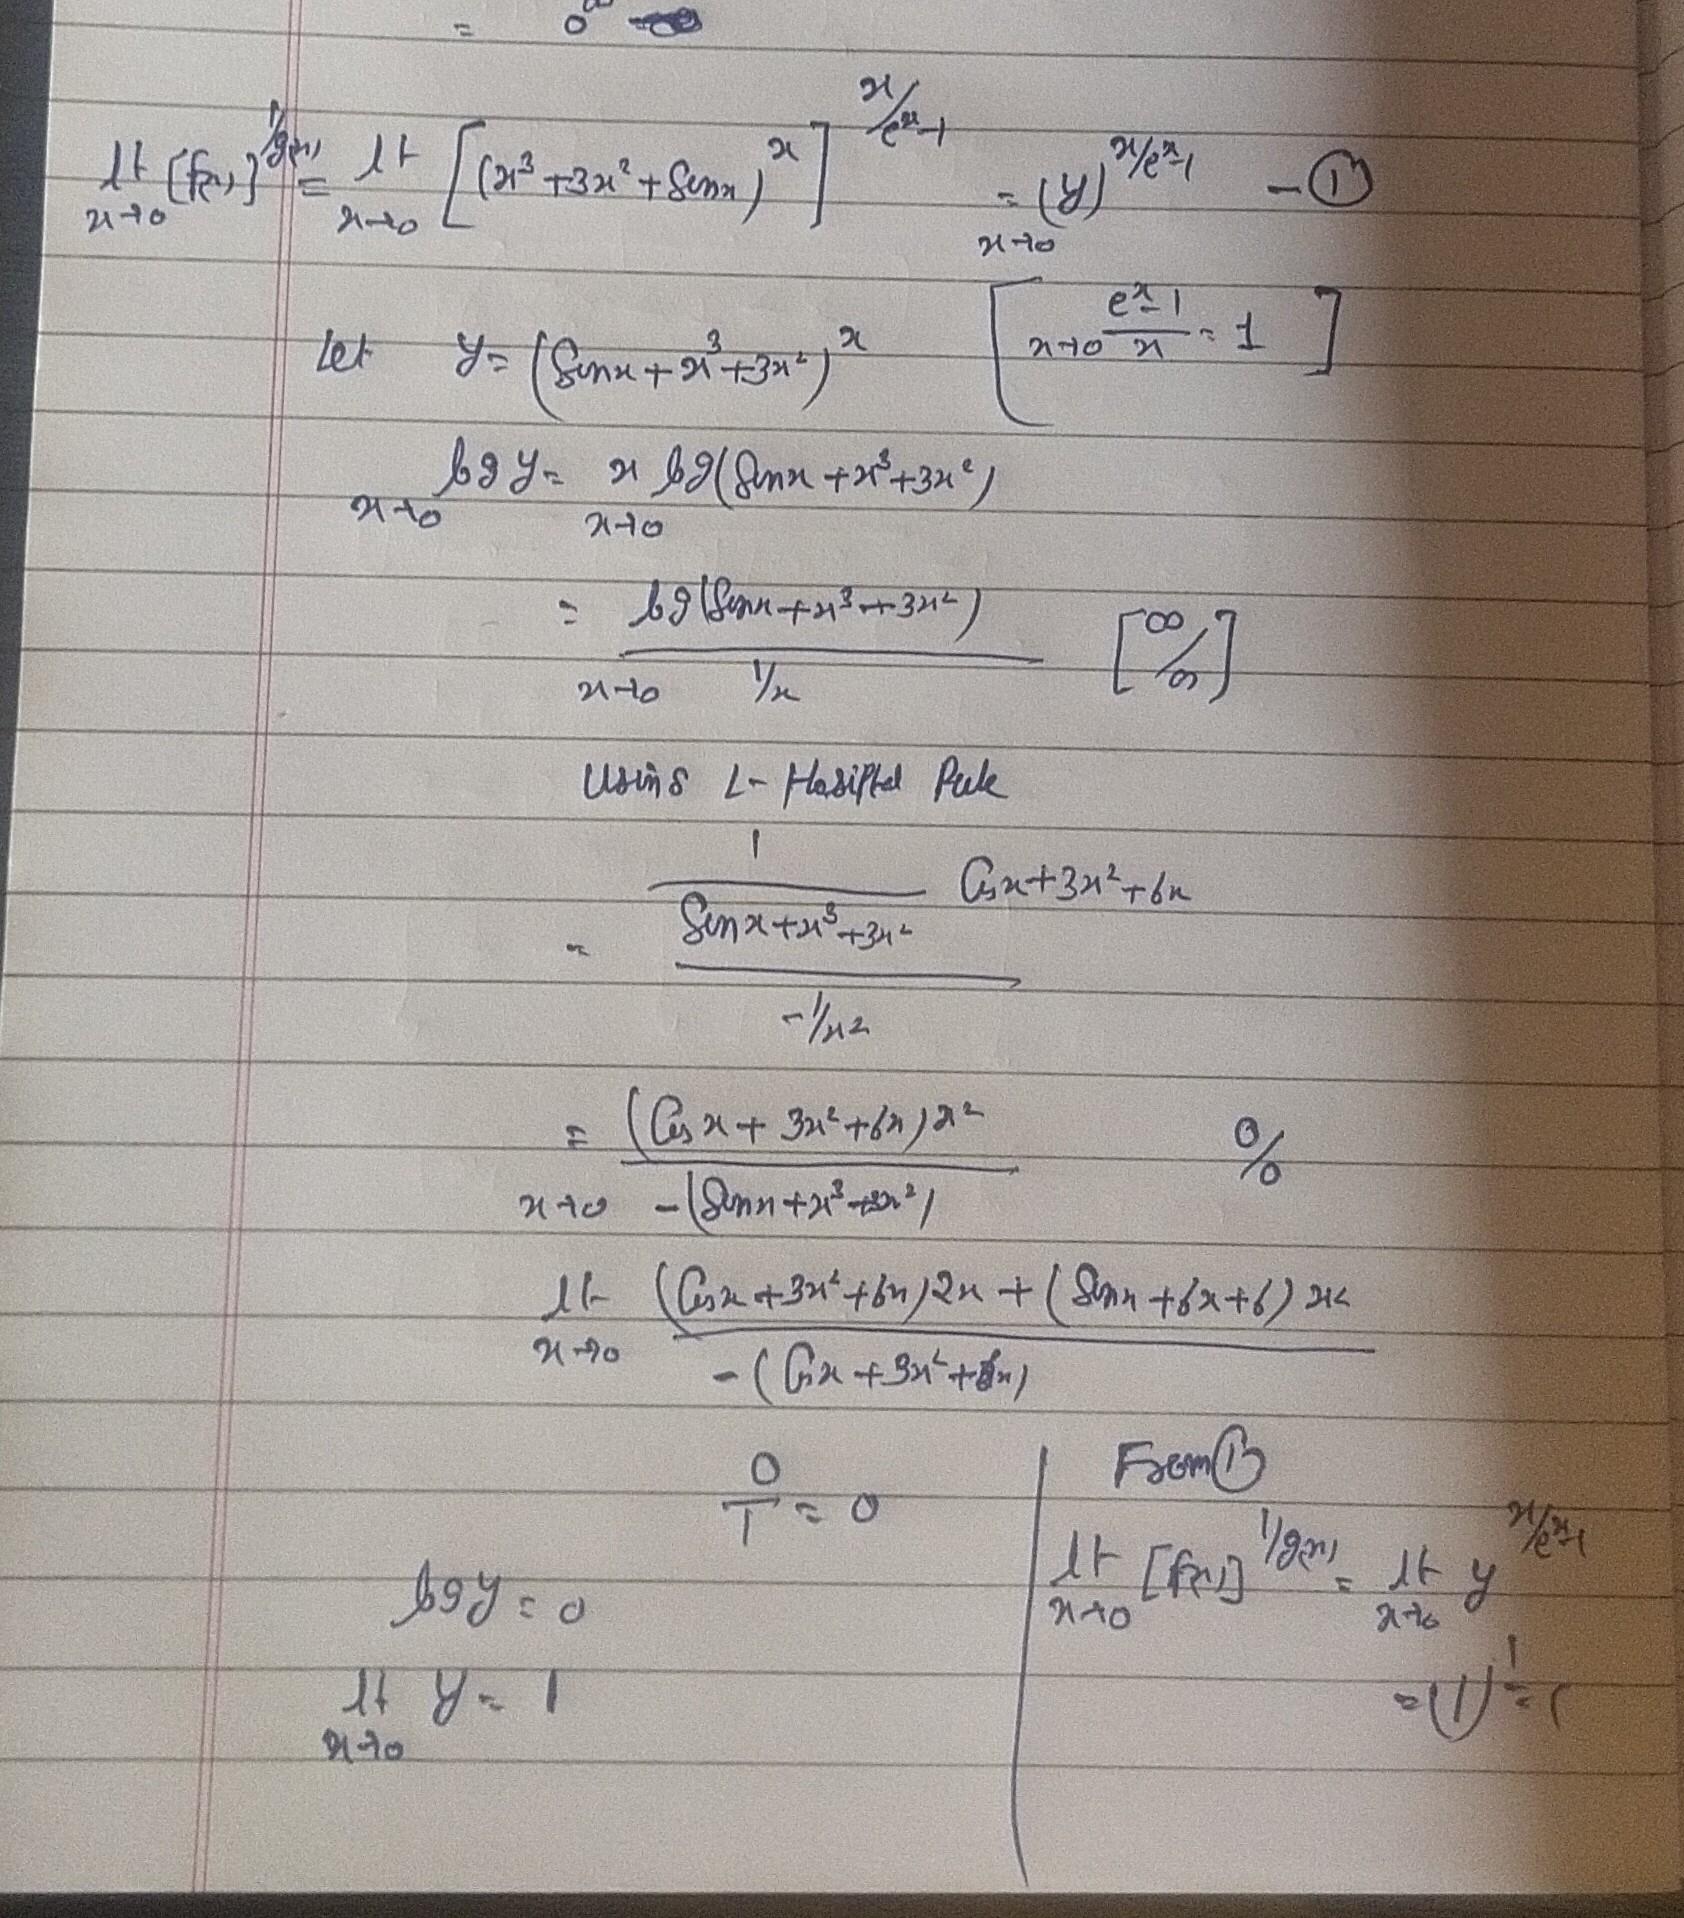 = 0^∞
lt x→0 [f(x)]^1/g(x) = lt x→0 [(x³+3x²+Sinx)^x]^x/eˣ-1 = x→0 (y)^x/eˣ-1 - ①
Let y = (Sinx + x³+3x²)^x [x→0 eˣ-1/x = 1]
x→0 log y = x→0 x log(Sinx + x³+3x²)
= x→0 log(Sinx + x³+3x²) / 1/x [∞/∞]
Using L-Hosiptal Rule
= 1/(Sinx + x³+3x²) Cosx+3x²+6x / -1/x²
= x→0 (Cosx + 3x²+6x)x² / -(Sinx + x³+3x²) 0/0
lt x→0 (Cosx + 3x²+6x)2x + (Sinx + 6x+6) x² / -(Cosx + 3x²+6x)
0/1 = 0
log y = 0
lt x→0 y = 1
From ①
lt x→0 [f(x)]^1/g(x) = lt x→0 y^x/eˣ-1
= (1)^1 = 1